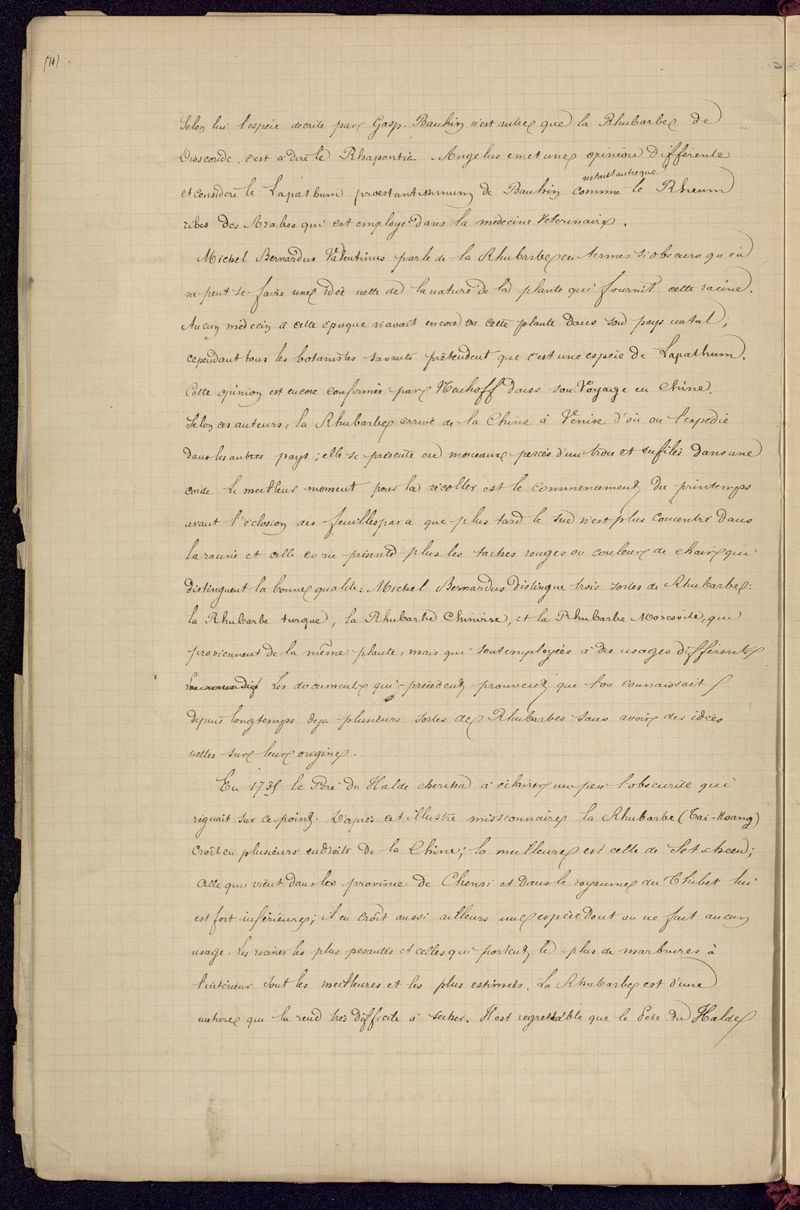 (11)
Selon lui l'espèce décrite par Gasp. Bauhin n'est autre que la Rhubarbe de
Dioscoride, c'est à dire le Rhapontic. Angelus émet une opinion différente
n'étant autre que
et considère le Lapathum proestantissimum de Bauhin comme le Rheum
ribes des Arabes qui est employé dans la médecine vétérinaire.
Michel Bernardus Valentinus parle de la Rhubarbe en termes si obscurs qu'on
ne peut se faire une idée nette de la nature de la plante qui fournit cette racine.
Aucun médecin à cette époque n'avait encore vu cette plante dans son pays natal,
cependant tous les botanistes savants prétendent que c'est une espèce de Lapathum.
Cette opinion est encore confirmée par Neuhoff dans son Voyage en Chine.
Selon ces auteurs, la Rhubarbe arrive de la Chine à Venise d'où on l'expédie
dans les autres pays; elle se présente en morceaux percés d'un trou et enfilés dans une
corde. Le meilleur moment pour la récolter est le commencement du printemps
avant l'éclosion des feuilles parce que plus tard le suc n'est plus concentré dans
la racine et celle ci ne présente plus les taches rouges ou couleur de chair qui
distinguent la bonne qualité. Michel Bernardus distingue trois sortes de Rhubarbe:
la Rhubarbe turque, la Rhubarbe Chinoise, et la Rhubarbe Moscovite, qui
proviennent de la même plante, mais qui sont employées à des usages différents
Les documents qui précèdent prouvent que l'on connaissait
depuis longtemps déjà plusieurs sortes de Rhubarbes sans avoir des idées
nettes sur leur origine.
En 1735 le Père du Halde chercha à éclairer un peu l'obscurité qui
régnait sur ce point. D'après cet illustre missionnaire la Rhubarbe (Tai-Hoang)
croît en plusieurs endroits de la Chine; la meilleure est celle de Setchcen;
celle qui vient dans la province de Chensi et dans le royaume du Thibet lui
est fort inférieure; il en croît aussi ailleurs une espèce dont on ne fait aucun
usage. Les racines les plus pesantes et celles qui portent le plus de marbrures à
l'intérieur sont les meilleures et les plus estimées. La Rhubarbe est d'une
nature qui la rend très difficile à sécher. Il est regrettable que le Père du Halde